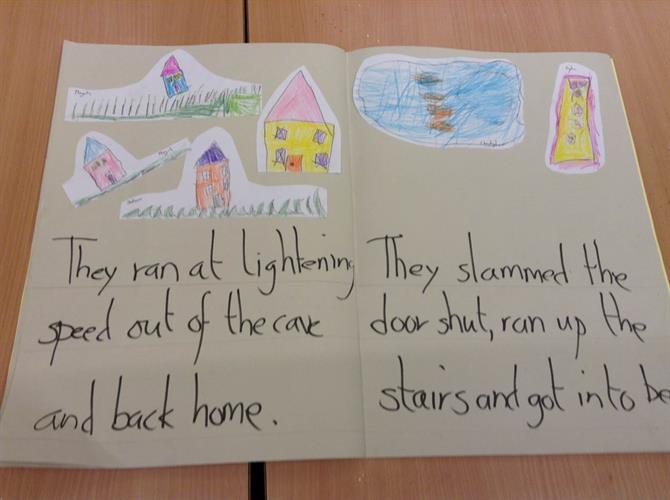 They ran at lightening
speed out of the cave
and back home.
They slammed the
door shut, ran up the
stairs and got into be